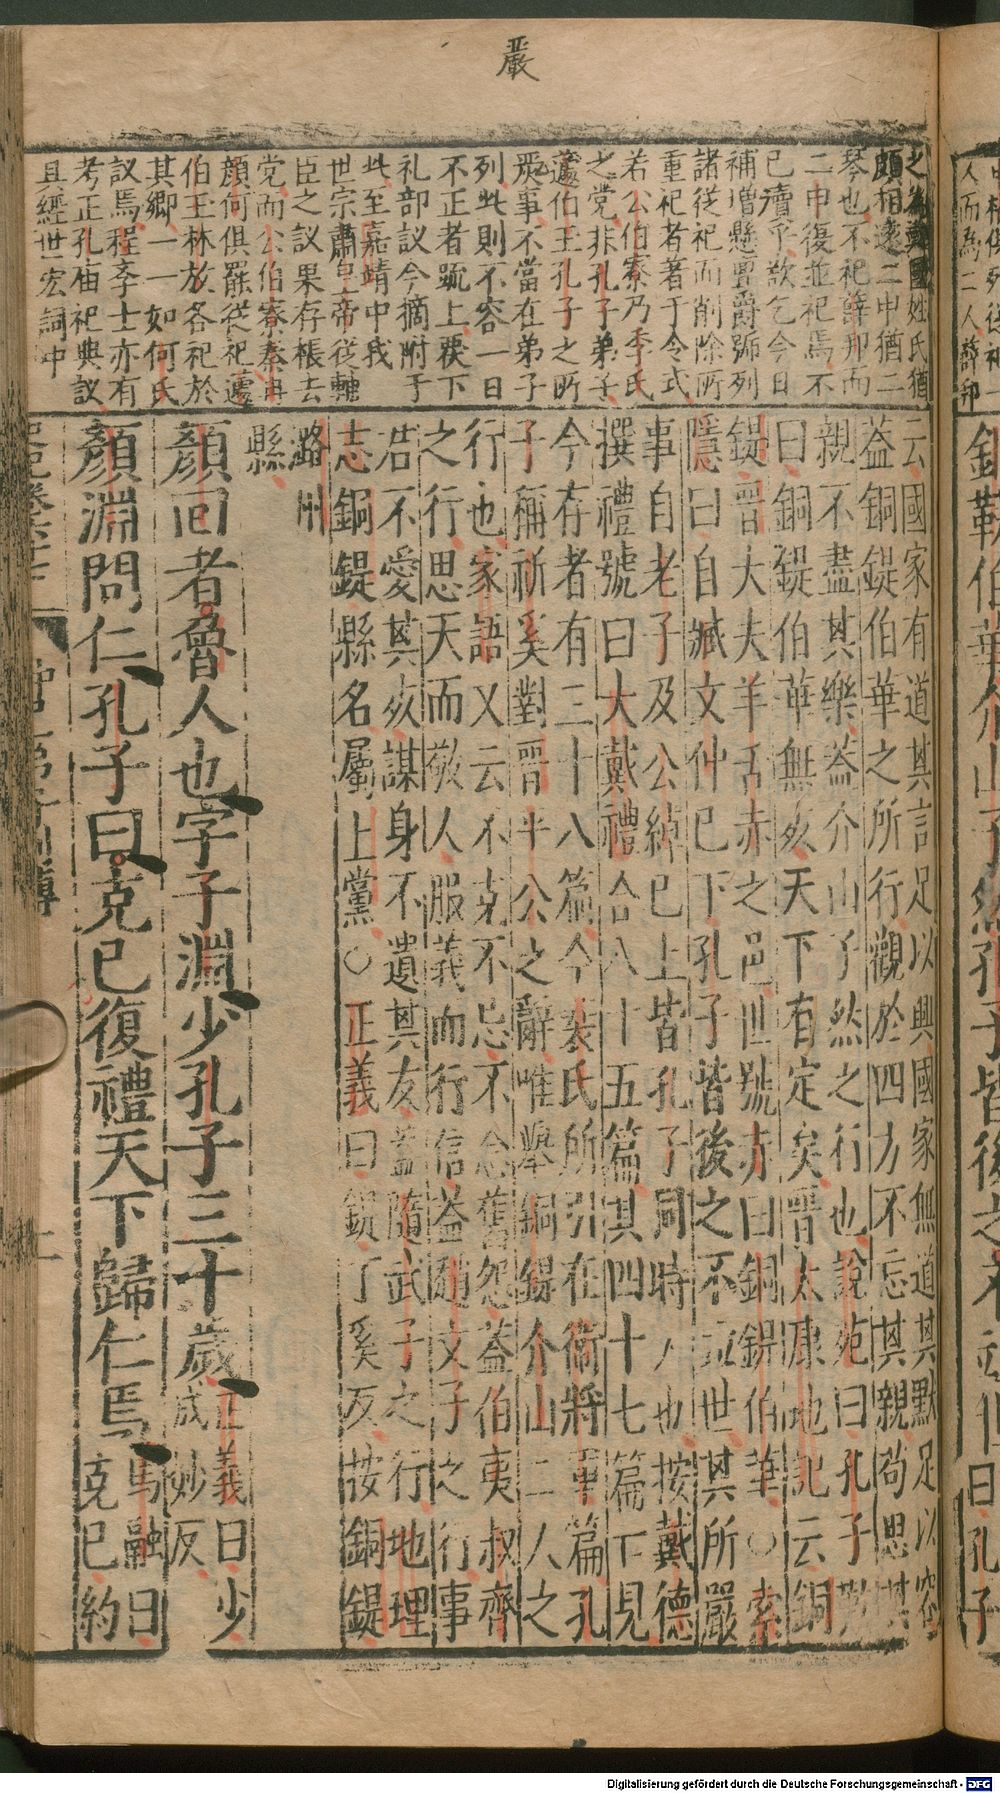 嚴
之為鄭國姓氏猶
頗相遠二申猶二
琴也不祀薛邦而
二申復並祀焉不
已瀆乎歟乞今日
補增懸亶爵號列
諸從祀而削除所
重祀者著于令式
若公伯寮乃季氏
之党非孔子弟子
蘧伯玉孔子之所
嚴事不當在弟子
列此則不容一日
不正者號上覆下
禮部議今摘附于
此至嘉靖中我
世宗肅皇帝從輔
臣之議果存棖去
党而公伯寮秦冉
顏何俱罷從祀蘧
伯玉林放各祀於
其鄉一一如何氏
議焉程李士亦有
考正孔庙祀典議
具經世宏詞中
云國家有道其言足以興國家無道其默足以容
蓋銅鍉伯華之所行觀於四方不忘其親苟思其
親不盡其樂蓋介山子然之行也說苑曰孔子歎
曰銅鍉伯華無死天下有定矣晉太康地記云銅
鍉晉大夫羊舌赤之邑世號赤曰銅鍉伯華○索
隱曰自臧文仲已下孔子皆後之不並世其所嚴
事自老子及公綽已上皆孔子同時人也按戴德
撰禮號曰大戴禮合八十五篇其四十七篇亡見
今存者有三十八篇今裴氏所引在衛將軍篇孔
子稱祈奚對晉平公之辭唯舉銅鍉介山二人之
行也家語又云不克不忌不念舊怨蓋伯夷叔齊
之行思天而敬人服義而行信蓋趙文子之行事
君不愛其死謀身不遺其友蓋隨武子之行地理
志銅鍉縣名屬上黨○正義曰鍉丁奚反按銅鍉
潞州
縣
顏回者魯人也字子淵少孔子三十歲正義曰少
戍妙反
顏淵問仁孔子曰克已復禮天下歸仁焉馬融曰
克已約
史記卷六十七
仲尼弟子列傳
二
人而為二人薛邦
曰孔子
Digitalisierung gefördert durch die Deutsche Forschungsgemeinschaft - DFG